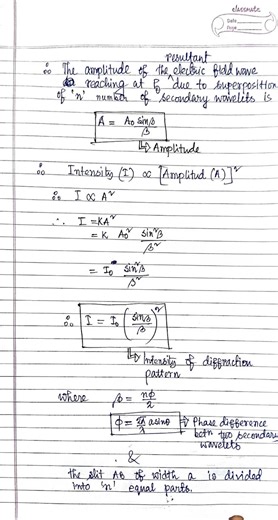 classmate
Date
Page
resultant
∴ The amplitude of the electric field wave
reaching at P₀ ^ due to superposition
of 'n' number of secondary wavelets is
A = A₀ sinβ / β
↳ Amplitude
∴ Intensity (I) ∝ [Amplitud (A)]²
∴ I ∝ A²
∴ I = KA²
= K A₀² sin²β / β²
= I₀ sin²β / β²
∴ I = I₀ (sinβ / β)²
↳ Intensity of diffraction
pattern
where β = nϕ / 2
ϕ = a sinθ → Phase difference
betn two secondary
wavelets
&
the slit AB of width a is divided
into 'n' equal parts.